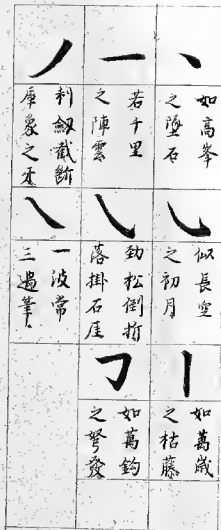 如高峯
之墜石
若千里
之陣雲
利劔截斷
犀象之牙
似長空
之初月
勁松倒折
落掛石崖
一波常
三過筆
如萬歲
之枯藤
如萬鈞
之弩發